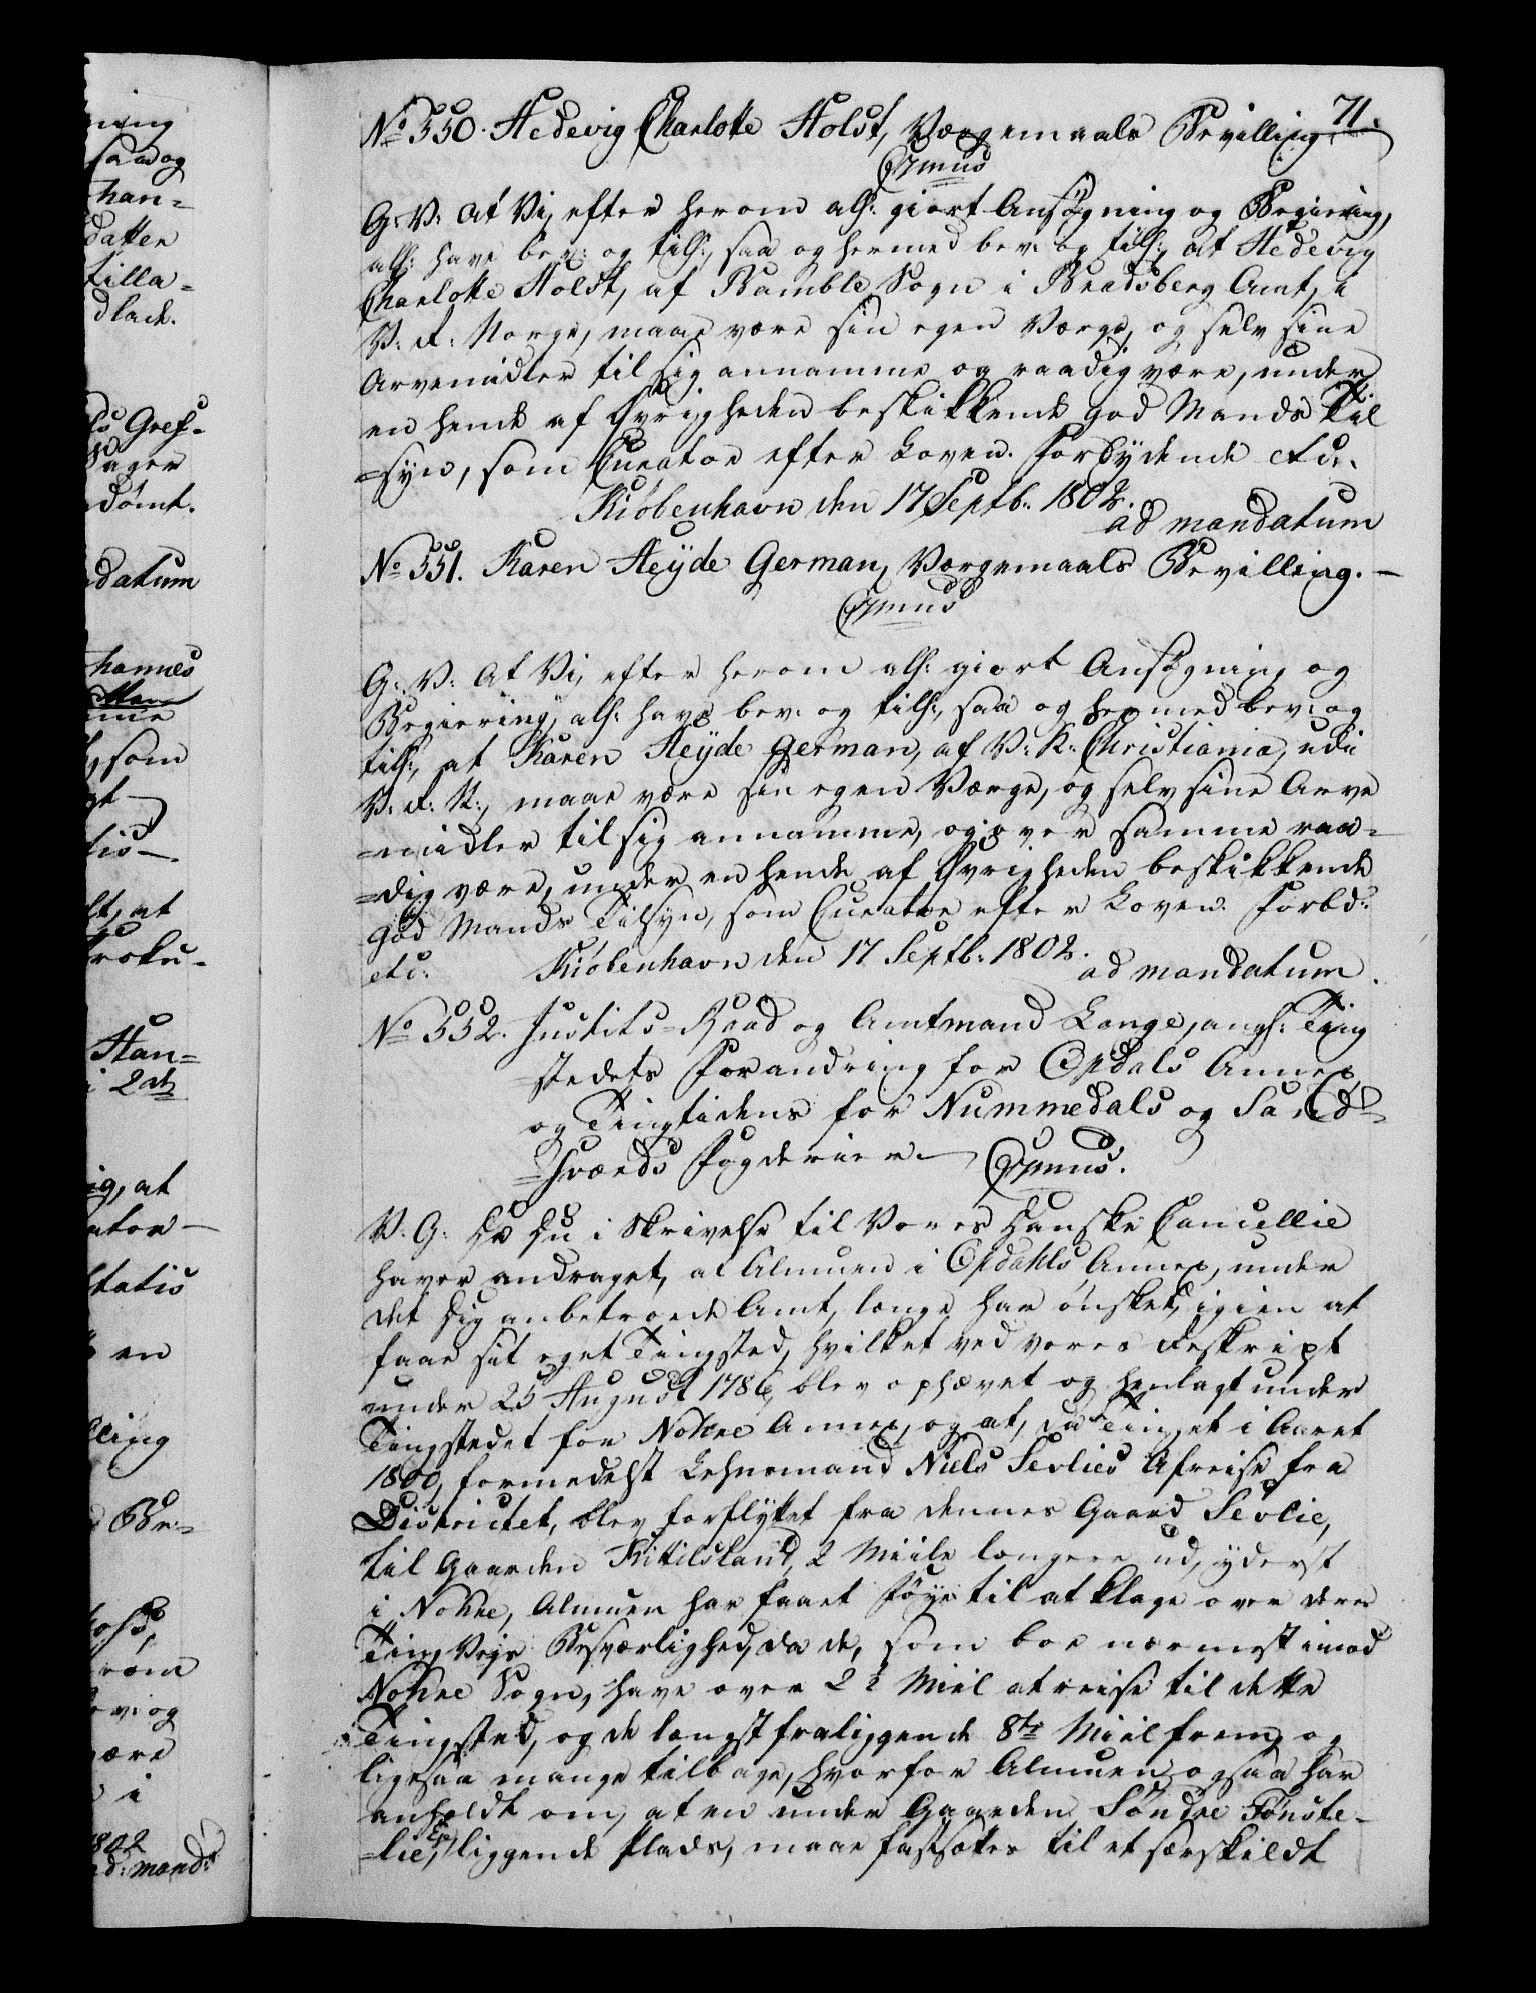 ning
saa og
han=
datter
tilla=
dlade.
ds Gref=
Sager
dömt.
datum
hannes
som
gt
tis
lt, at
roku=
Han=
i 2de
ig, at
ator
tatis
en
lling
Be=
rom
ev: og
være
i
1802
ad: mand:
71.
No 550. Hedevig Charlotte Holst, Værgemaals Bevilling
Crmus
G: V: At Vi, efter herom alh: giort Ansøgning og Begiering,
alh: have bev: og tilh:, saa og hermed bev: og tilh:, at Hedevig
Charlotte Holst, af Bamble Sogn i Bradsberg Amt, i
V: R: Norge, maae være sin egen Værge, og selv sine
Arvemidler til sig annamme og raadig være, under
en hende af Øvrigheden beskikkende god Mands Til
=syn, som Curator efter Loven. Forbydende etc:.
Kiöbenhavn den 17 Septb: 1802.
ad mandatum
No 551. Karen Heÿde German, Værgemaals Bevilling. —
Crmus
G: V: At Vi, efter herom alh: giort Ansøgning og
Begiering, alh: have bev: og tilh:, saa og hermed bev: og
tilh:, at Karen Heÿde German, af V: K: Christiania, udi
V: R: N:, maae være sin egen Værge, og selv sine Arve
=midler til sig annamme, og over samme raa=
=dig være, under en hende af Øvrigheden beskikkende
god Mands Tilsyn, som Curator efter Loven. Forbd:
etc: Kiöbenhavn den 17 Septb: 1802.
ad mandatum.
No 552. Justits=Raad og Amtmand Lange, angh: Ting
=stedets Forandring for Opdals Annex,
og Tingtidens for Nummedals og Sand=
=sværds Fogderier. — Crmus.
V: G: Da Du i Skrivelse til Vores Danske Cancellie
haver andraget, at Almuen i Opdahls Annex, under
det Dig anbetroede Amt, længe har ønsket, igien at
faae sit eget Tingsted, hvilket ved vores Reskript
under 25 August 1786, blev ophævet og henlagt under
Tingstedet for Nohre Annex, og at, da Tinget i Aaret
1800, formedelst Lehnsmand Niels Sevlies Afreise fra
Districtet, blev forflyttet fra dennes Gaard Sevlie,
til Gaarden Kittilsland, 2 Miile længere ud, yderst
i Nohre, Almuen har faaet Føye til at klage over deres
Ting Veys Besværlighed, da de, som boe nærmest imod
Nohre Sogn, have over 2 ½ Miil at reise til dette
Tingsted, og de længst fraliggende 8te Miil frem, og
ligesaa mange tilbage, hvorfor Almuen ogsaa har
anholdt om, at en under Gaarden Söndre Fönste=
=lie, liggende Plads, maae fastsættes til et særskildt